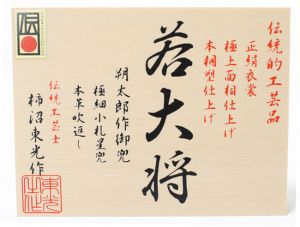 伝統的工芸品
正絹衣裳
極上面相仕上げ
本桐塑仕上げ
若大将
朔太郎作御兜
極細小札星兜
本革吹返し
伝統工芸士
柿沼東光作
伝
東光